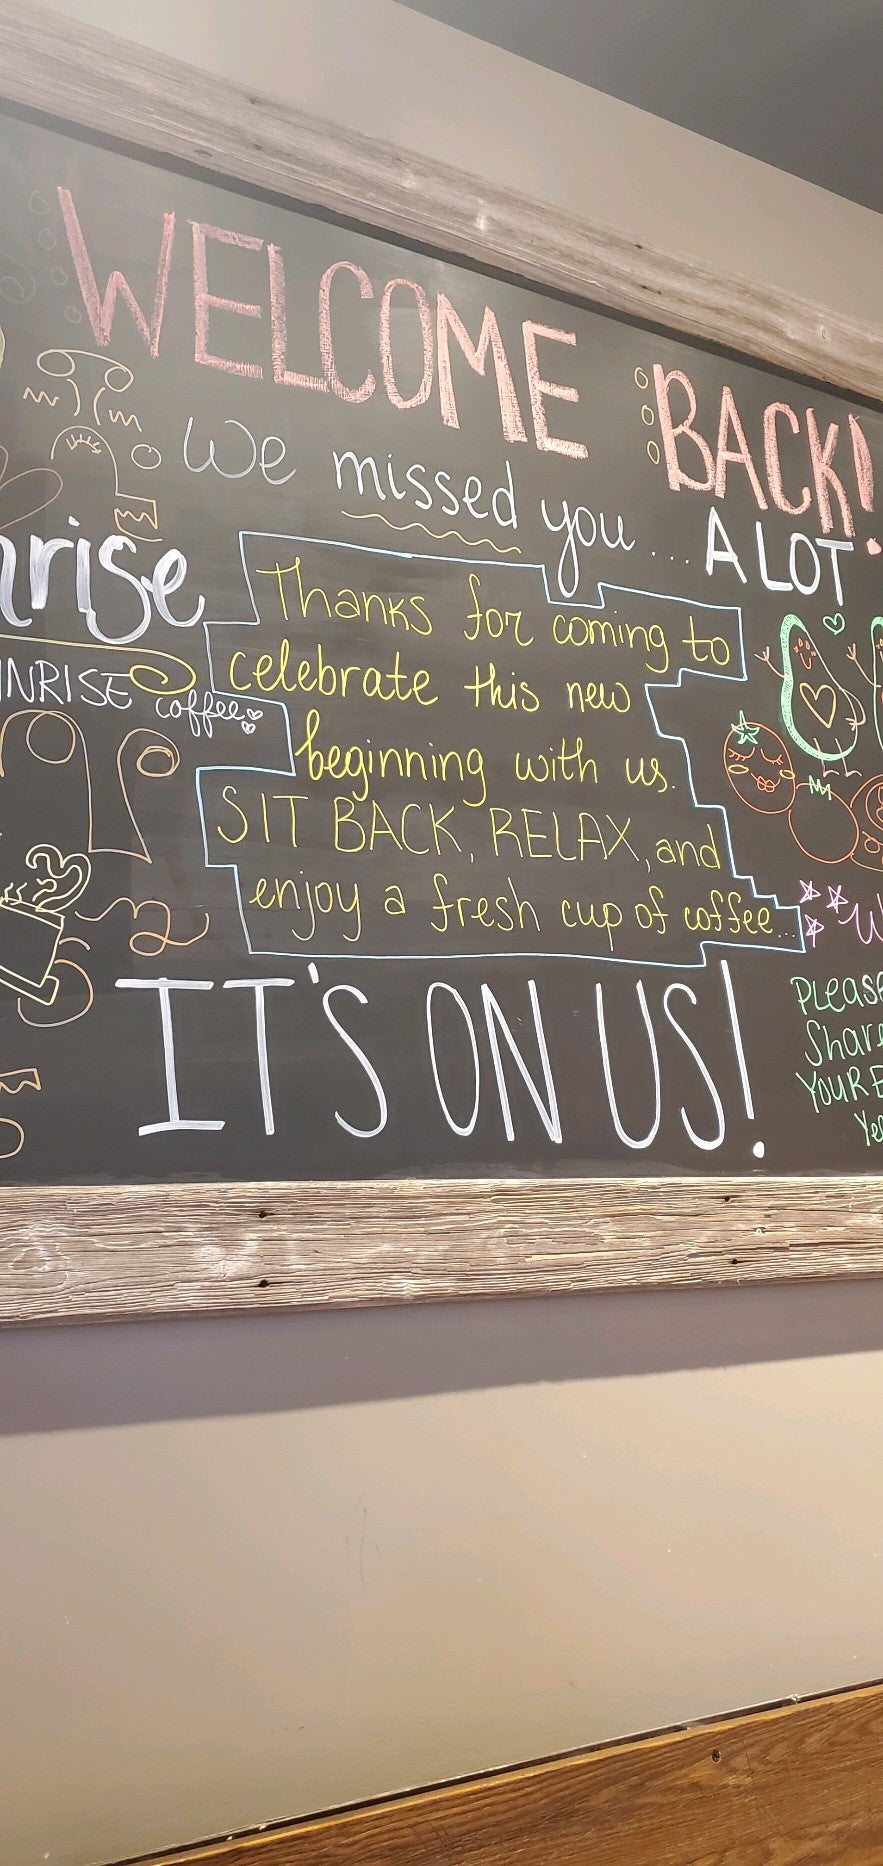 WELCOME BACK!
We missed you... A LOT
rise
NRISE coffee
Thanks for coming to
celebrate this new
beginning with us.
SIT BACK, RELAX, and
enjoy a fresh cup of coffee...
IT'S ON US!
Please
Share
YOUR